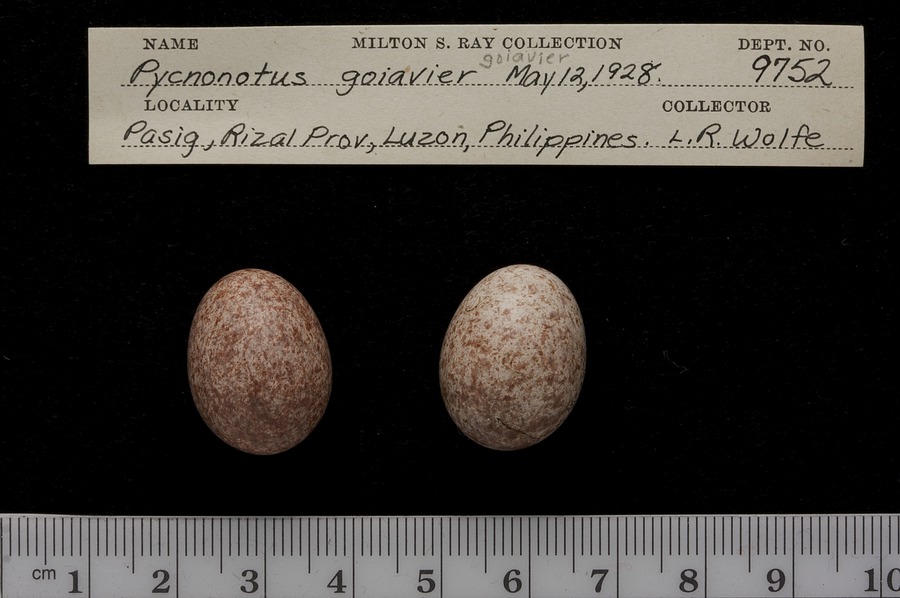 NAME MILTON S. RAY COLLECTION DEPT. NO.
goiavier
Pycnonotus goiavier May 12, 1928. 9752
LOCALITY COLLECTOR
Pasig, Rizal Prov., Luzon, Philippines. L.R. Wolfe
cm 1 2 3 4 5 6 7 8 9 10